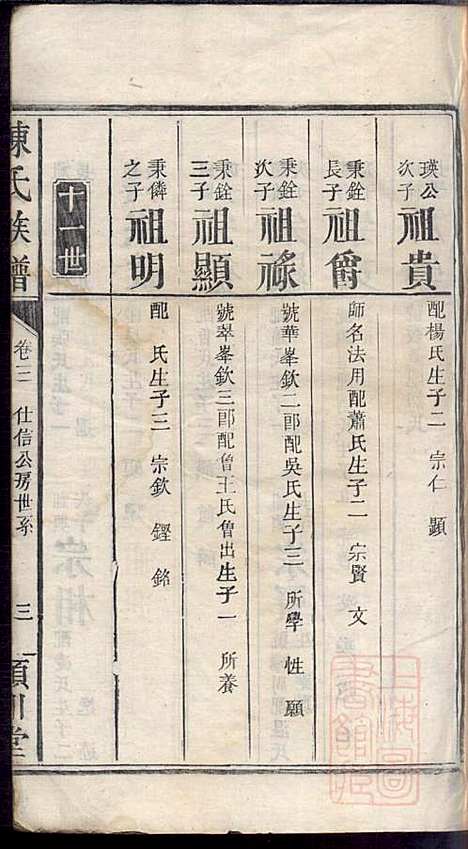 瑛公次子 祖貴 配楊氏生子二 宗仁 顯
秉銓長子 祖爵 師名法用配蕭氏生子二 宗賢 文
秉銓次子 祖祿 號華峯欽二郎配吳氏生子三 所學 性 願
秉銓三子 祖顯 號翠峯欽三郎配曾王氏曾出生子一 所養
秉傑之子 祖明 配 氏生子三 宗欽 鏗 銘
十一世
陳氏族譜 卷三 仕信公房世系 三 潁川堂
上海圖書館藏